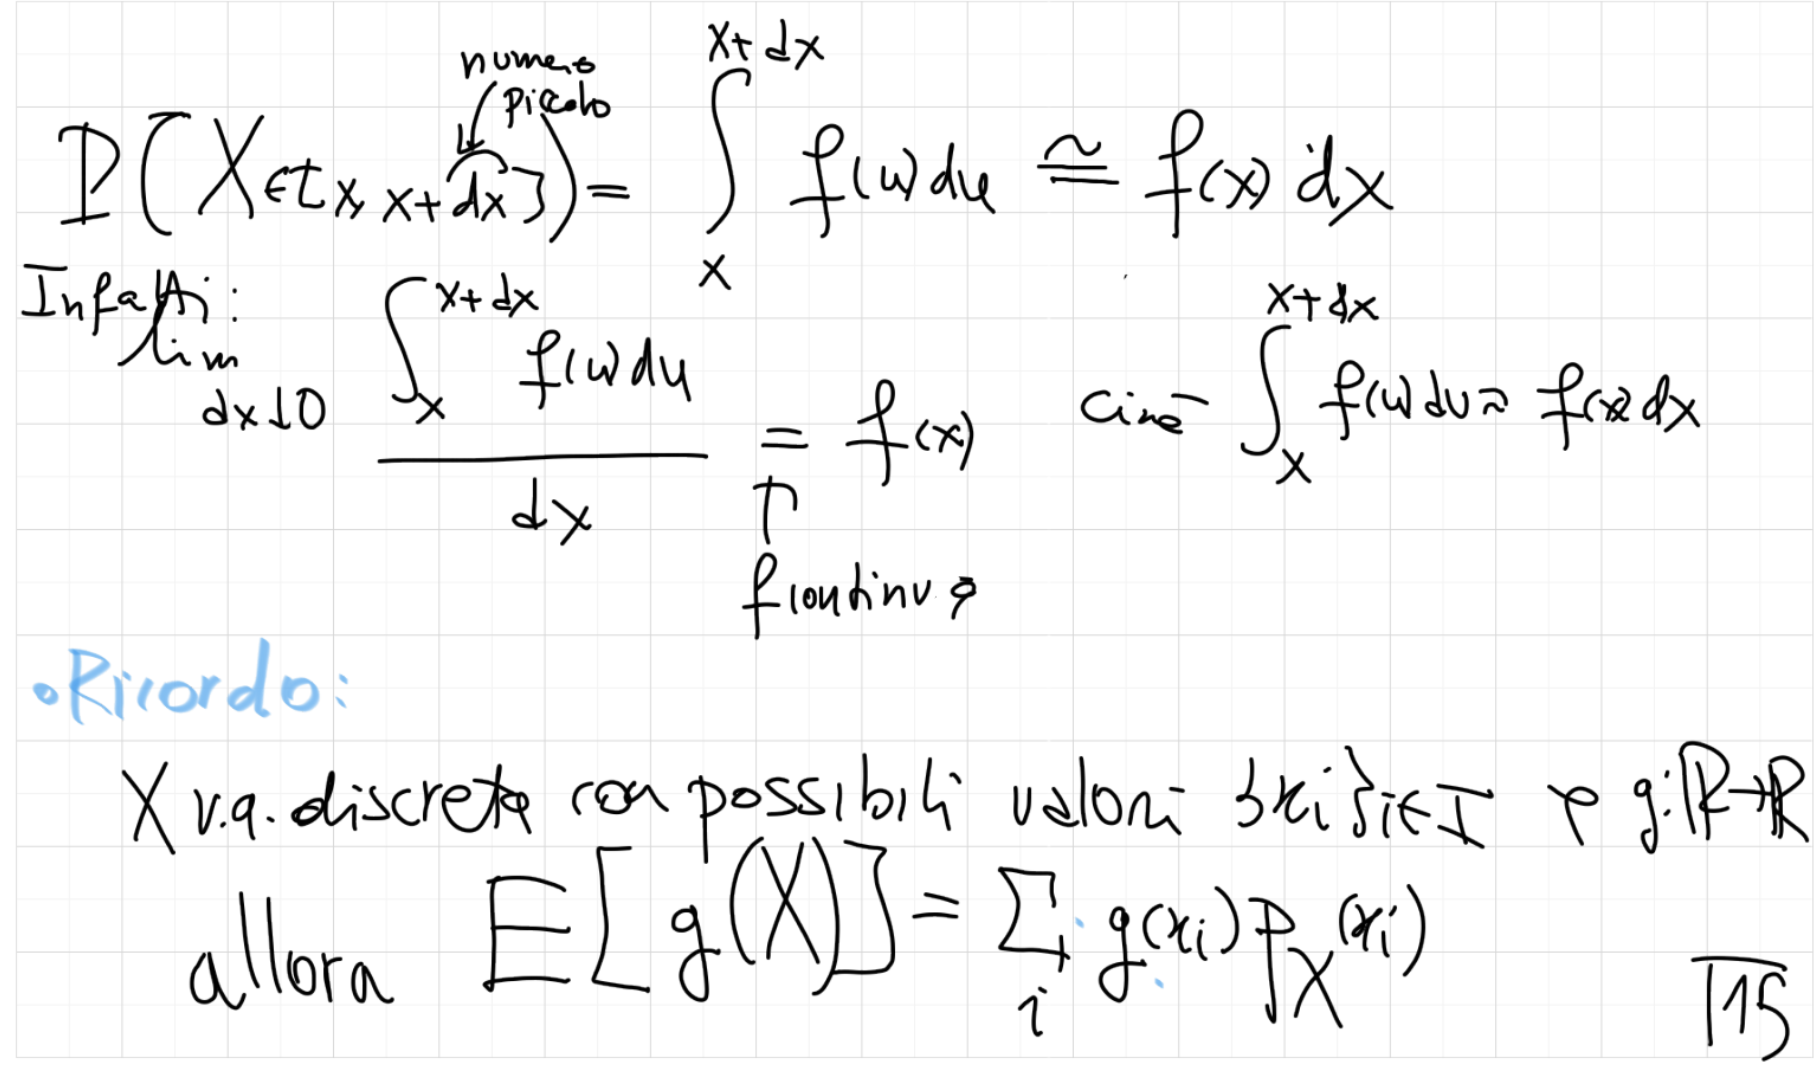 numero piccolo
P(X ∈ [x, x+dx]) = ∫_x^{x+dx} f(u)du ≅ f(x) dx
Infatti:
lim_{dx↓0} (∫_x^{x+dx} f(u)du) / dx = f(x) cioè ∫_x^{x+dx} f(u)du ≈ f(x)dx
↑
f continua
• Ricordo:
X v.a. discreta con possibili valori {xi}i∈I e g: ℝ→ℝ
allora E[g(X)] = Σ_i g(xi) p_X(xi)
115